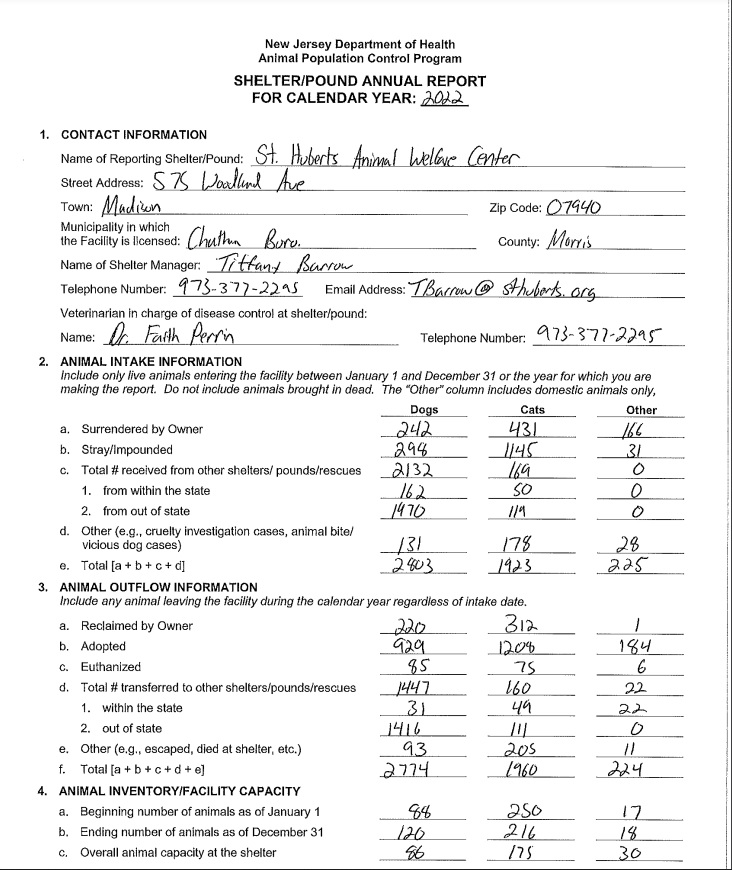 New Jersey Department of Health
Animal Population Control Program
SHELTER/POUND ANNUAL REPORT
FOR CALENDAR YEAR: 2022
1. CONTACT INFORMATION
Name of Reporting Shelter/Pound: St. Huberts Animal Welfare Center
Street Address: 575 Woodland Ave
Town: Madison Zip Code: 07940
Municipality in which
the Facility is licensed: Chatham Boro. County: Morris
Name of Shelter Manager: Tiffany Barrow
Telephone Number: 973-377-2295 Email Address: TBarrow@sthuberts.org
Veterinarian in charge of disease control at shelter/pound:
Name: Dr. Faith Perrin Telephone Number: 973-377-2295
2. ANIMAL INTAKE INFORMATION
Include only live animals entering the facility between January 1 and December 31 or the year for which you are
making the report. Do not include animals brought in dead. The "Other" column includes domestic animals only,
Dogs Cats Other
a. Surrendered by Owner 242 431 166
b. Stray/Impounded 298 1145 31
c. Total # received from other shelters/ pounds/rescues 2132 169 0
1. from within the state 162 50 0
2. from out of state 1970 119 0
d. Other (e.g., cruelty investigation cases, animal bite/
vicious dog cases) 131 178 28
e. Total [a + b + c + d] 2803 1923 225
3. ANIMAL OUTFLOW INFORMATION
Include any animal leaving the facility during the calendar year regardless of intake date.
a. Reclaimed by Owner 220 312 1
b. Adopted 929 1208 184
c. Euthanized 85 75 6
d. Total # transferred to other shelters/pounds/rescues 1447 160 22
1. within the state 31 49 22
2. out of state 1416 111 0
e. Other (e.g., escaped, died at shelter, etc.) 93 205 11
f. Total [a + b + c + d + e] 2774 1960 224
4. ANIMAL INVENTORY/FACILITY CAPACITY
a. Beginning number of animals as of January 1 88 250 17
b. Ending number of animals as of December 31 120 216 18
c. Overall animal capacity at the shelter 86 175 30